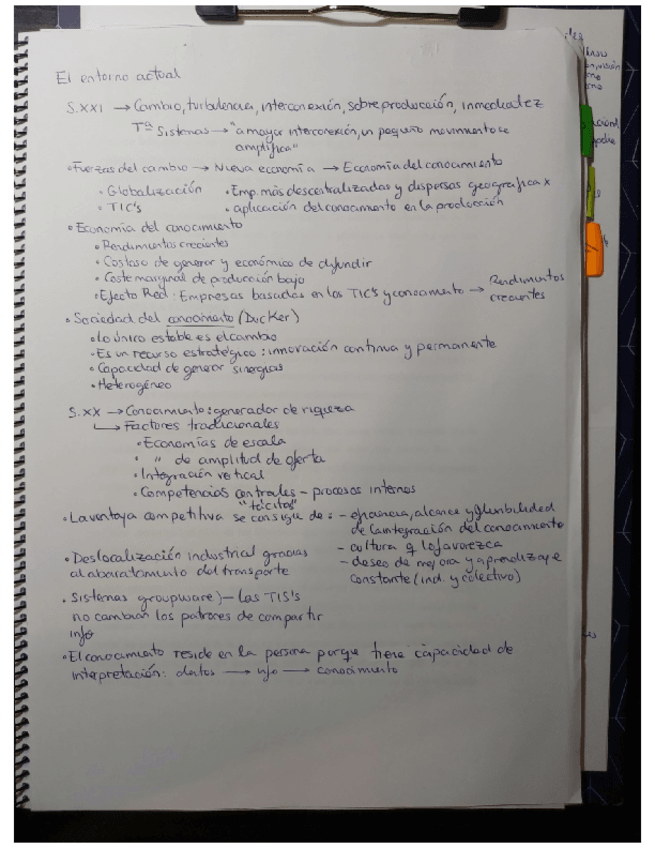 El entorno actual
S.XXI → Cambio, turbulencia, interconexión, sobreproducción, inmediatez
Tª Sistemas → "a mayor interconexión, un pequeño movimiento se
amplifica"
• Fuerzas del cambio → Nueva economía → Economía del conocimiento
• Globalización • Emp. más descentralizadas y dispersas geográficax
• TIC's • aplicación del conocimiento en la producción
• Economía del conocimiento
• Rendimientos crecientes
• Costoso de generar y económico de difundir
• Coste marginal de producción bajo
• Efecto Red: Empresas basadas en las TIC's y conocimiento → Rendimientos
crecientes
• Sociedad del conocimiento (Ducker)
• lo único estable es el cambio
• Es un recurso estratégico: innovación continua y permanente
• Capacidad de generar sinergias
• Heterogéneo
S.XX → Conocimiento: generador de riqueza
→ Factores tradicionales
• Economías de escala
• " de amplitud de oferta
• Integración vertical
• Competencias centrales - procesos internos
"tácitos"
• La ventaja competitiva se consigue de: - eficiencia, alcance y flexibilidad
de la integración del conocimiento
- cultura q lo favorezca
- deseo de mejora y aprendizaje
constante (ind. y colectivo)
• Deslocalización industrial gracias
al abaratamiento del transporte
• Sistemas groupware) - Las TIS's
no cambian los patrones de compartir
info
• El conocimiento reside en la persona porque tiene capacidad de
interpretación: datos → info → conocimiento